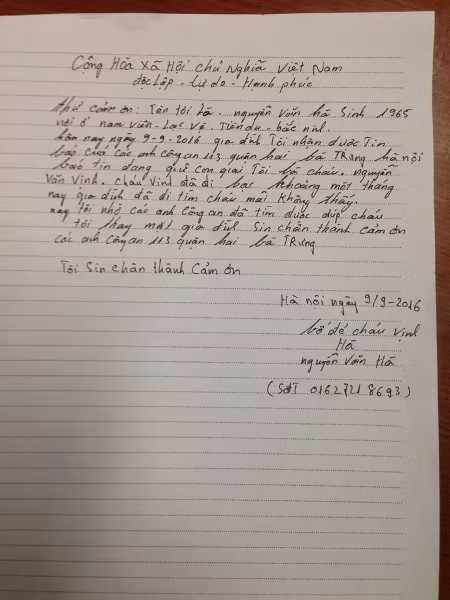 Cộng Hòa Xã Hội chủ Nghĩa Việt Nam
độc Lập - tự do - Hạnh phúc
thư cảm ơn: Tên tôi là. nguyễn văn hà Sinh 1965
nơi ở nam viên - Lạc Vệ. Tiên du - bắc ninh.
hôm nay ngày 9-9-2016 gia đình Tôi nhận được Tin
báo của các anh công an 113 quận hai bà TRưng hà nội
báo tin đang giữ con giai Tôi là cháu. nguyễn
Văn Vinh. cháu Vinh đã đi bạc khoảng một tháng
nay gia đình đã đi tìm cháu mãi không thấy.
nay tôi nhờ các anh công an đã tìm được dúp cháu
tôi thay mặt gia đình Sin chân thành cảm ơn
các anh công an 113 quận hai bà TRưng
Tôi Sin chân thành cảm ơn
Hà nội ngày 9/9-2016
bố đẻ cháu Vinh
Hà
nguyễn Văn Hà
(SĐT 01627218693)